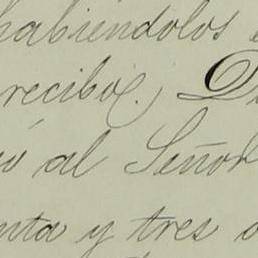 habiéndolos
recibió.
ó al Señor
nta y tres